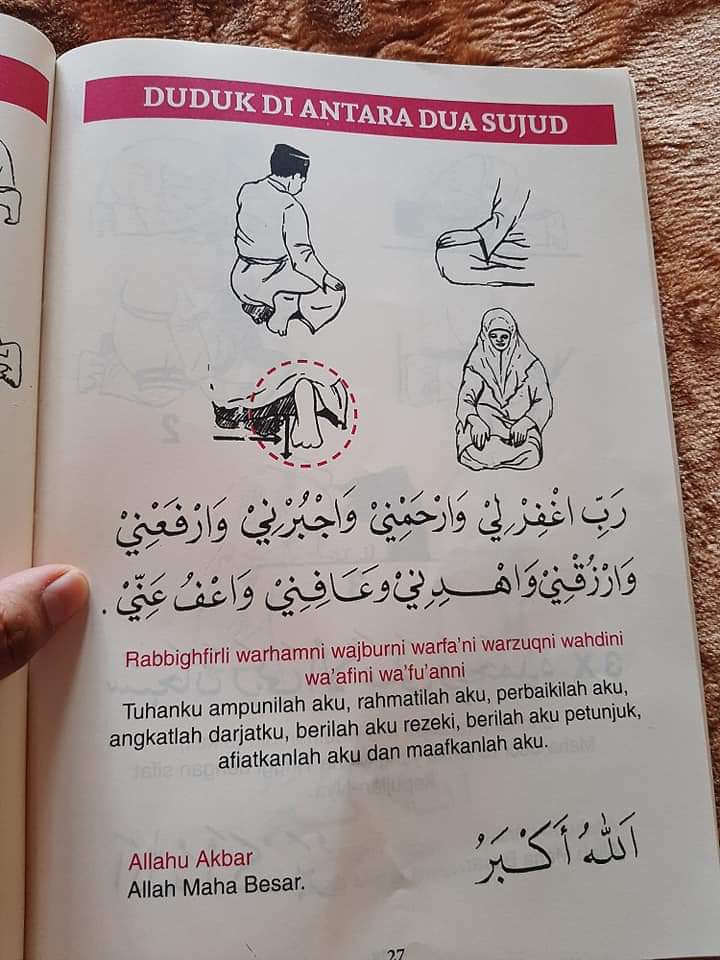 DUDUK DI ANTARA DUA SUJUD
رَبِّ اغْفِرْ لِيْ وَارْحَمْنِيْ وَاجْبُرْنِيْ وَارْفَعْنِيْ
وَارْزُقْنِيْ وَاهْـــدِنِيْ وَعَـافِـنِيْ وَاعْفُ عَنِّيْ .
Rabbighfirli warhamni wajburni warfa'ni warzuqni wahdini
wa'afini wa'fu'anni
Tuhanku ampunilah aku, rahmatilah aku, perbaikilah aku,
angkatlah darjatku, berilah aku rezeki, berilah aku petunjuk,
afiatkanlah aku dan maafkanlah aku.
اَللهُ أَكْبَرُ
Allahu Akbar
Allah Maha Besar.
27